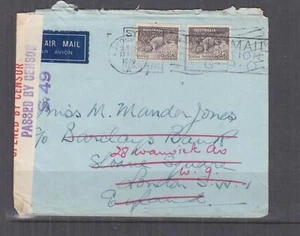 AIR MAIL
AVION
AUSTRALIA
AUSTRALIA
MAIL
OPENED BY CENSOR
PASSED BY CENSOR
S.49
Miss M. Mander Jones
c/o Barclays Bank
28 Warwick Av
Sloane Square
W.9
London S.W.1
England